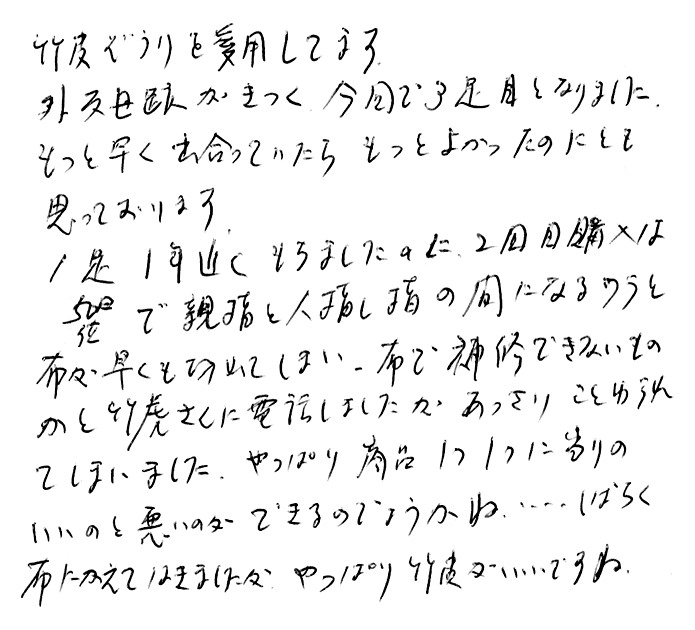 竹皮ぞうりを愛用してます。
外反母趾がきつく、今回で3足目となりました。
もっと早く出合っていたら もっとよかったのにとも
思っております。
1足 1年近くもちましたのに、2回目購入は
5ヶ月位で親指と人指し指の間になるウラと
布が早くも切れてしまい、布で補修できないもの
かと竹虎さんに電話しましたが あっさり ことわられ
てしまいました。やっぱり 商品 1つ1つに当りの
いいのと悪いのができるのでしょうかね。……しばらく
布にかえてはきましたが、やっぱり 竹皮がいいですね。